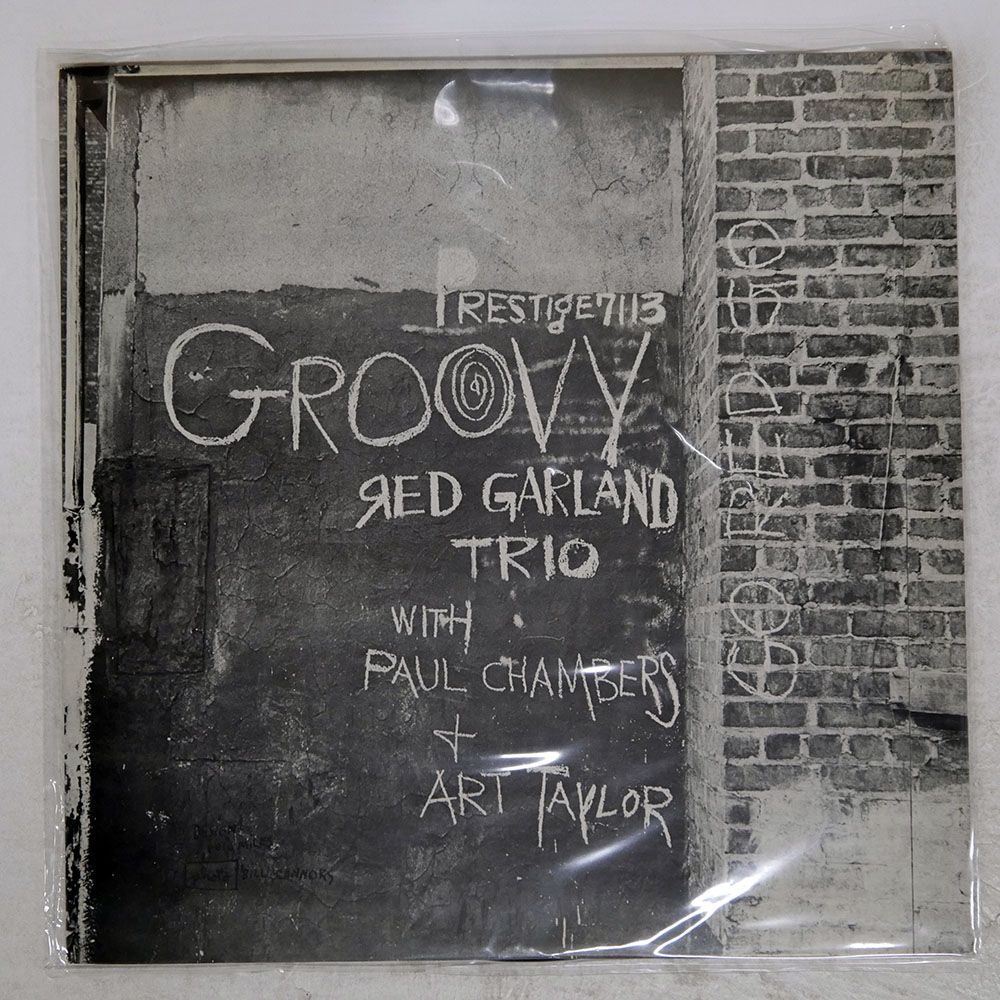 PRESTIGE 7113
GROOVY
RED GARLAND
TRIO
WITH
PAUL CHAMBERS
+
ART TAYLOR
DESIGN
RED